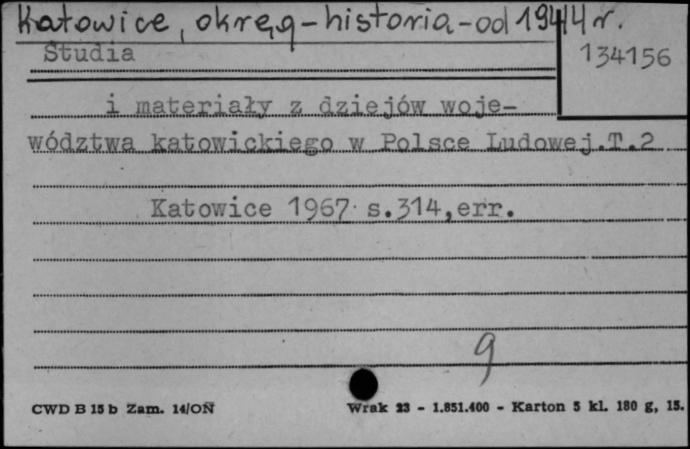 Katowice, okręg-historia-od 1944 r.
Studia
134156
i materiały z dziejów woje-
wództwa katowickiego w Polsce Ludowej.T.2
Katowice 1967 s.314,err.
9
CWD B 15 b Zam. 14/ON
Wrak 23 - 1.851.400 - Karton 5 kl. 180 g, 15.